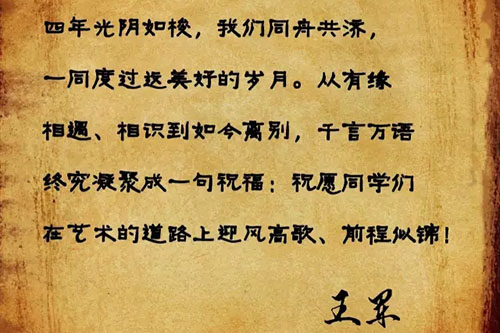 四年光阴如梭，我们同舟共济，
一同度过远美好的岁月。从有缘
相遇、相识到如今离别，千言万语
终究凝聚成一句祝福：祝愿同学们
在艺术的道路上迎风高歌、前程似锦！
王